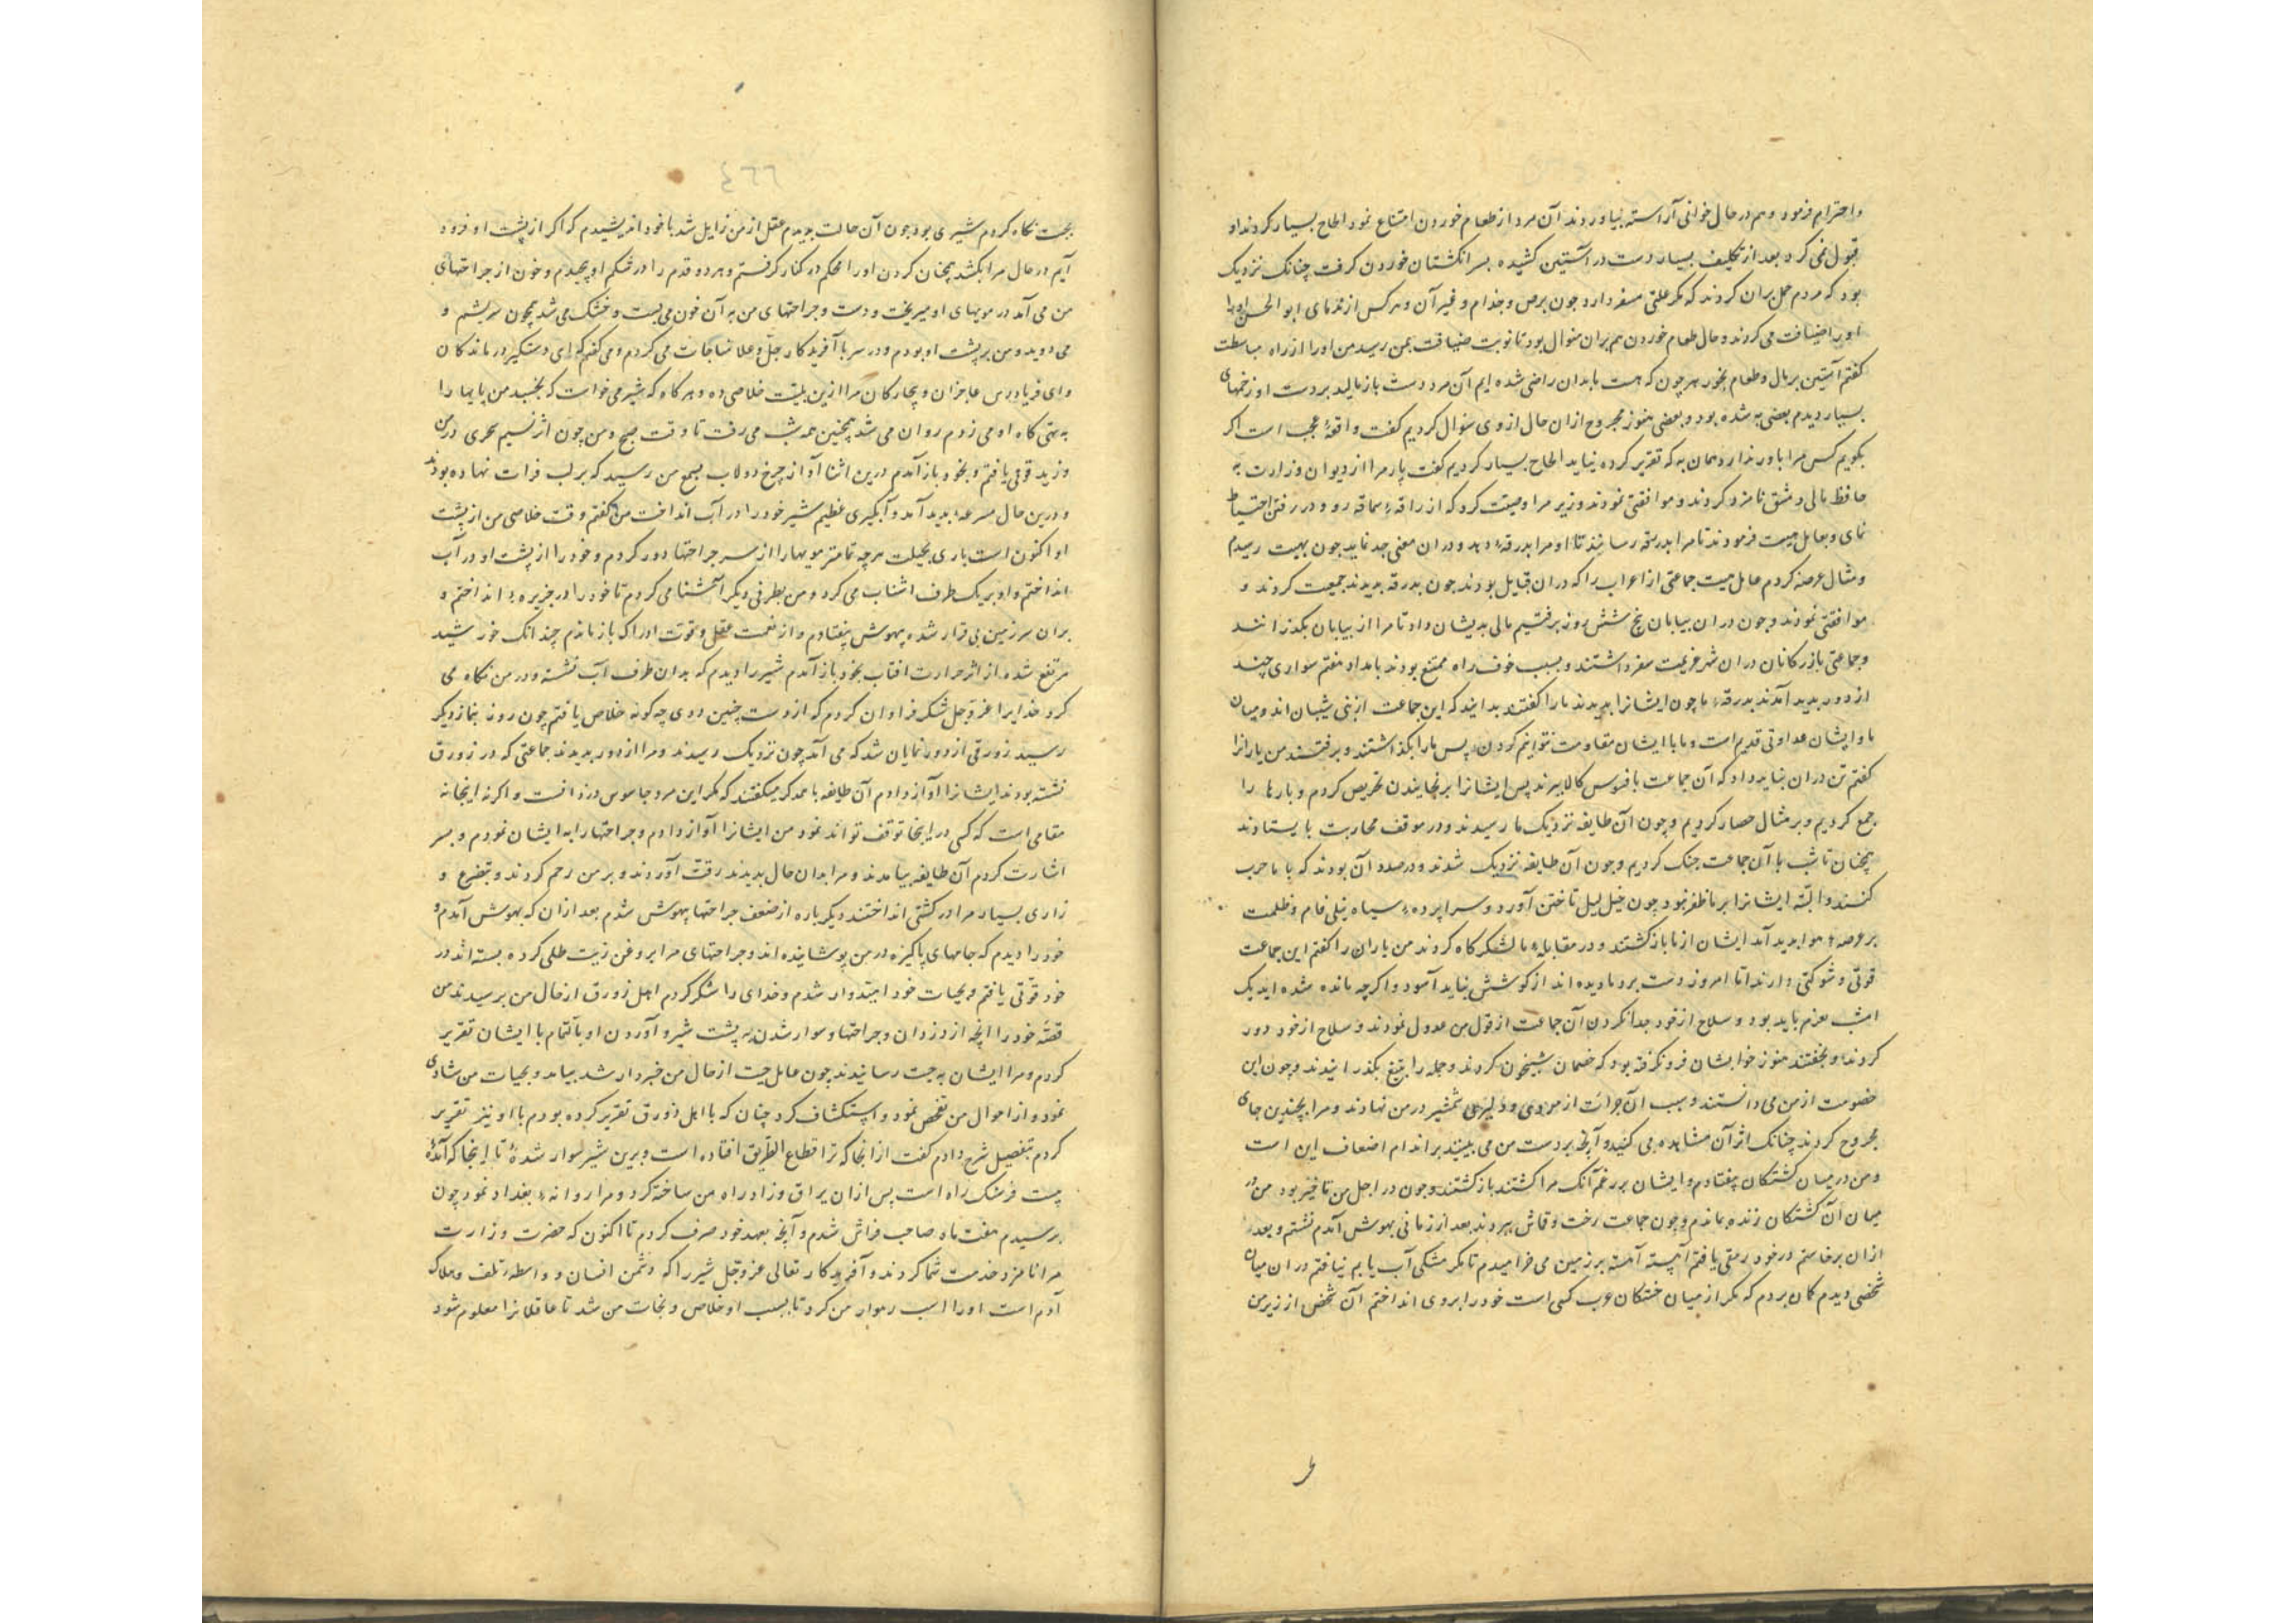 واحترام فرمود وهم در حال خوانی آراسته بیاوردند آن مرد از طعام خوردن امتناع نمود الحاح بسیار کردند او
قبول نمی کرد بعد از تکلیف بسیار دست در آستین کشیده بسر انکشتان خوردن کرفت چنانک نزدیک
بود که مردم حمل بران کردند که مکر علتی مسفر دارد چون برص و جذام و غیر آن و هر کس از ندمای ابو الحسن
اورا ضیافت می کردند و حال طعام خوردن هم بران منوال بود تا نوبت ضیافت بمن رسید من اورا از راه مباسطت
کفتم آستین بر مال و طعام بخور هر چون که هست ما بدان راضی شده ایم آن مرد دست باز مالید بر دست او زخمهای
بسیار دیدم بعضی به شده بود و بعضی هنوز مجروح ازان حال ازوی سؤال کردیم کفت واقعهٔ عجب است اکر
بکویم کس مرا باور ندارد همان به که تقریر کرده نیاید الحاح بسیار کردیم کفت پار مرا از دیوان وزارت به
حافظ مالی دمشق نامزد کردند و موافقتی نمودند وزیر مرا وصیت کرد که از راه سماقه رو و در رفتن احتیاط
نمای و بعامل هیت فرمودند تا مرا بدرقه رسانند تا او مرا بدرقهٔ دهد و دران معنی جد نماید چون بهیت رسیدم
و مثال عرضه کردم عامل هیت جماعتی از اعراب را که دران قبایل بودند چون بدرقه بدیدند جمعیت کردند و
موافقتی نمودند و چون دران بیابان پنج شش روز برفتیم مالی بدیشان داد تا مرا از بیابان بکذرانند
و جماعتی بازرکانان دران شهر عزیمت سفر داشتند و بسبب خوف راه ممتنع بودند بامداد هفتم سواری چند
از دور بدید آمدند بدرقهٔ ما چون ایشانرا بدیدند مارا کفتند بدانید که این جماعت از بنی شیبان اند و میان
ما و ایشان عداوتی قدیم است و ما با ایشان مقاومت نتوانیم کردن پس مارا بکذاشتند و برفتند من یارانرا
کفتم تن دران نباید داد که آن جماعت بافسوس کالا ببرند پس ایشانرا بر نجایندن تحریص کردم و بارها را
جمع کردیم و بر مثال حصار کردیم و چون آن طایفه نزدیک ما رسیدند و در موقف محاربت بایستادند
همچنان تا شب با آن جماعت جنک کردیم و چون آن طایفه نزدیک شدند و در صدد آن بودند که با ما حرب
کنند و البته ایشانرا بر ما ظفر نبود چون خیل لیل تاختن آورد و سراپردهٔ سیاه نیلی فام و ظلمت
بر عرصهٔ هوا بدید آمد ایشان از ما باز کشتند و در مقابلهٔ ما لشکرکاه کردند من یاران را کفتم این جماعت
قوتی و شوکتی دارند اما امروز دست برد ما دیده اند از کوشش نباید آسود و اکرچه مانده شده اید یک
امشب بعزم باید بود و سلاح از خود جدا نکردن آن جماعت از قول من عدول نمودند و سلاح از خود دور
کردند و بخفتند هنوز خوابشان فرو نکرفته بود که خصمان شبیخون کردند و جمله را بتیغ بکذرانیدند و چون این
خصومت از من می دانستند و سبب آن جرأت از مردی و دلیری شمشیر در من نهادند و مرا بچندین جای
مجروح کردند چنانک اثر آن مشاهده می کنید و آنچه بر دست من می بینید بر اندام اضعاف این است
و من در میان کشتکان بیفتادم و ایشان بر رغم آنک مرا کشتند باز کشتند و چون در اجل من تاخیر بود من در
میان آن کشتکان زنده بماندم و چون جماعت رخت و قماش ببردند بعد از زمانی بهوش آمدم نشستم و بعد
ازان برخاستم در خود رمقی یافتم آهسته آهسته بر زمین می خرامیدم تا مکر مشکی آب یابم نیافتم دران میان
شخصی دیدم کمان بردم که مکر از میان خستکان عرب کسی است خود را بروی انداختم آن شخص از زیر من
بجست نکاه کردم شیری بود چون آن حالت بدیدم عقل از من زایل شد با خود اندیشیدم که اکر از پشت او فرود
آیم در حال مرا بکشد همچنان کردن اورا محکم در کنار کرفتم و هر دو قدم را در شکم او پیچیدم و خون از جراحتهای
من می آمد در مویهای او میریخت و دست و جراحتهای من به آن خون می بست و خشک می شد همچون سریشم و
می دوید و من بر پشت او بودم و در سر با آفریدکار جل و علا مناجات می کردم و می کفتم که ای دستکیر درماندکان
و ای فریادرس عاجزان و بیچارکان مرا ازین بلیت خلاصی ده و هرکاه که شیر می خواست که بخسبد من پایها را
به تهی کاه او می زدم روان می شد همچنین همه شب می رفت تا وقت صبح و من چون اثر نسیم سحری در من
وزید قوتی یافتم و بخود باز آمدم درین اثنا آواز چرخ دولاب بسمع من رسید که بر لب فرات نهاده بودند
و درین حال مسرعه بدید آمد و آبکیری عظیم شیر خود را در آب انداخت من کفتم وقت خلاصی من از پشت
او اکنون است باری بحیلت هرچه تمامتر مویها را از سر جراحتها دور کردم و خود را از پشت او در آب
انداختم و او بر یک طرف اشناب می کرد و من بطرفی دیکر آشنا می کردم تا خود را در جزیرهٔ انداختم و
بران سرزمین بی قرار شده بیهوش بیفتادم و از نعمت عقل و قوت ادراک باز ماندم چندانک خورشید
مرتفع شده از اثر حرارت افتاب بخود باز آمدم شیر را دیدم که بدان طرف آب نشسته و در من نکاه می
کرد خدایرا عز و جل شکر فراوان کردم که از دست چنین ددی چه کونه خلاص یافتم چون روز بنماز دیکر
رسید زورقی از دور نمایان شد که می آمد چون نزدیک رسیدند و مرا از دور بدیدند جماعتی که در زورق
نشسته بودند ایشانرا آواز دادم آن طایفه با همدکر میکفتند که مکر این مرد جاسوس دزدانست و اکرنه اینجانه
مقامی است که کسی در اینجا توقف تواند نمود من ایشانرا آواز دادم و جراحتهارا به ایشان نمودم و بسر
اشارت کردم آن طایفه بیامدند و مرا بدان حال بدیدند رقت آوردند و بر من رحم کردند و بتضرع و
زاری بسیار مرا در کشتی انداختند دیکر باره از ضعف جراحتها بیهوش شدم بعد ازان که بهوش آمدم و
خود را دیدم که جامهای پاکیزه در من پوشانیده اند و جراحتهای مرا بروغن زیت طلی کرده بسته اند در
خود قوتی یافتم و بحیات خود امیدوار شدم و خدای را شکر کردم اهل زورق از حال من برسیدند من
قصهٔ خود را انچه از دزدان و جراحتها و سوار شدن به پشت شیر و آوردن او بالتمام با ایشان تقریر
کردم و مرا ایشان به هیت رسانیدند چون عامل هیت از حال من خبردار شد بیامد و بحیات من شادی
نمود و از احوال من تفحص نمود و استکشاف کرد چنان که با اهل زورق تقریر کرده بودم با او نیز تقریر
کردم بتفصیل شرح دادم کفت از انجا که ترا قطاع الطریق افتاده است و برین شیر سوار شدهٔ تا اینجا که آمدهٔ
بیست فرسنک راه است پس ازان یراق و زاد راه من ساخته کرد و مرا روانهٔ بغداد نمود چون
برسیدم هفت ماه صاحب فراش شدم و آنچه بعهد خود صرف کردم تا اکنون که حضرت وزارت
مرا نامزد خدمت شما کردند و آفریدکار تعالی عز و جل شیر را که دشمن انسان و واسطهٔ تلف و هلاک
آدم است اورا اسب رهوار من کرد تا بسبب او خلاص و نجات من شد تا عاقلانرا معلوم شود